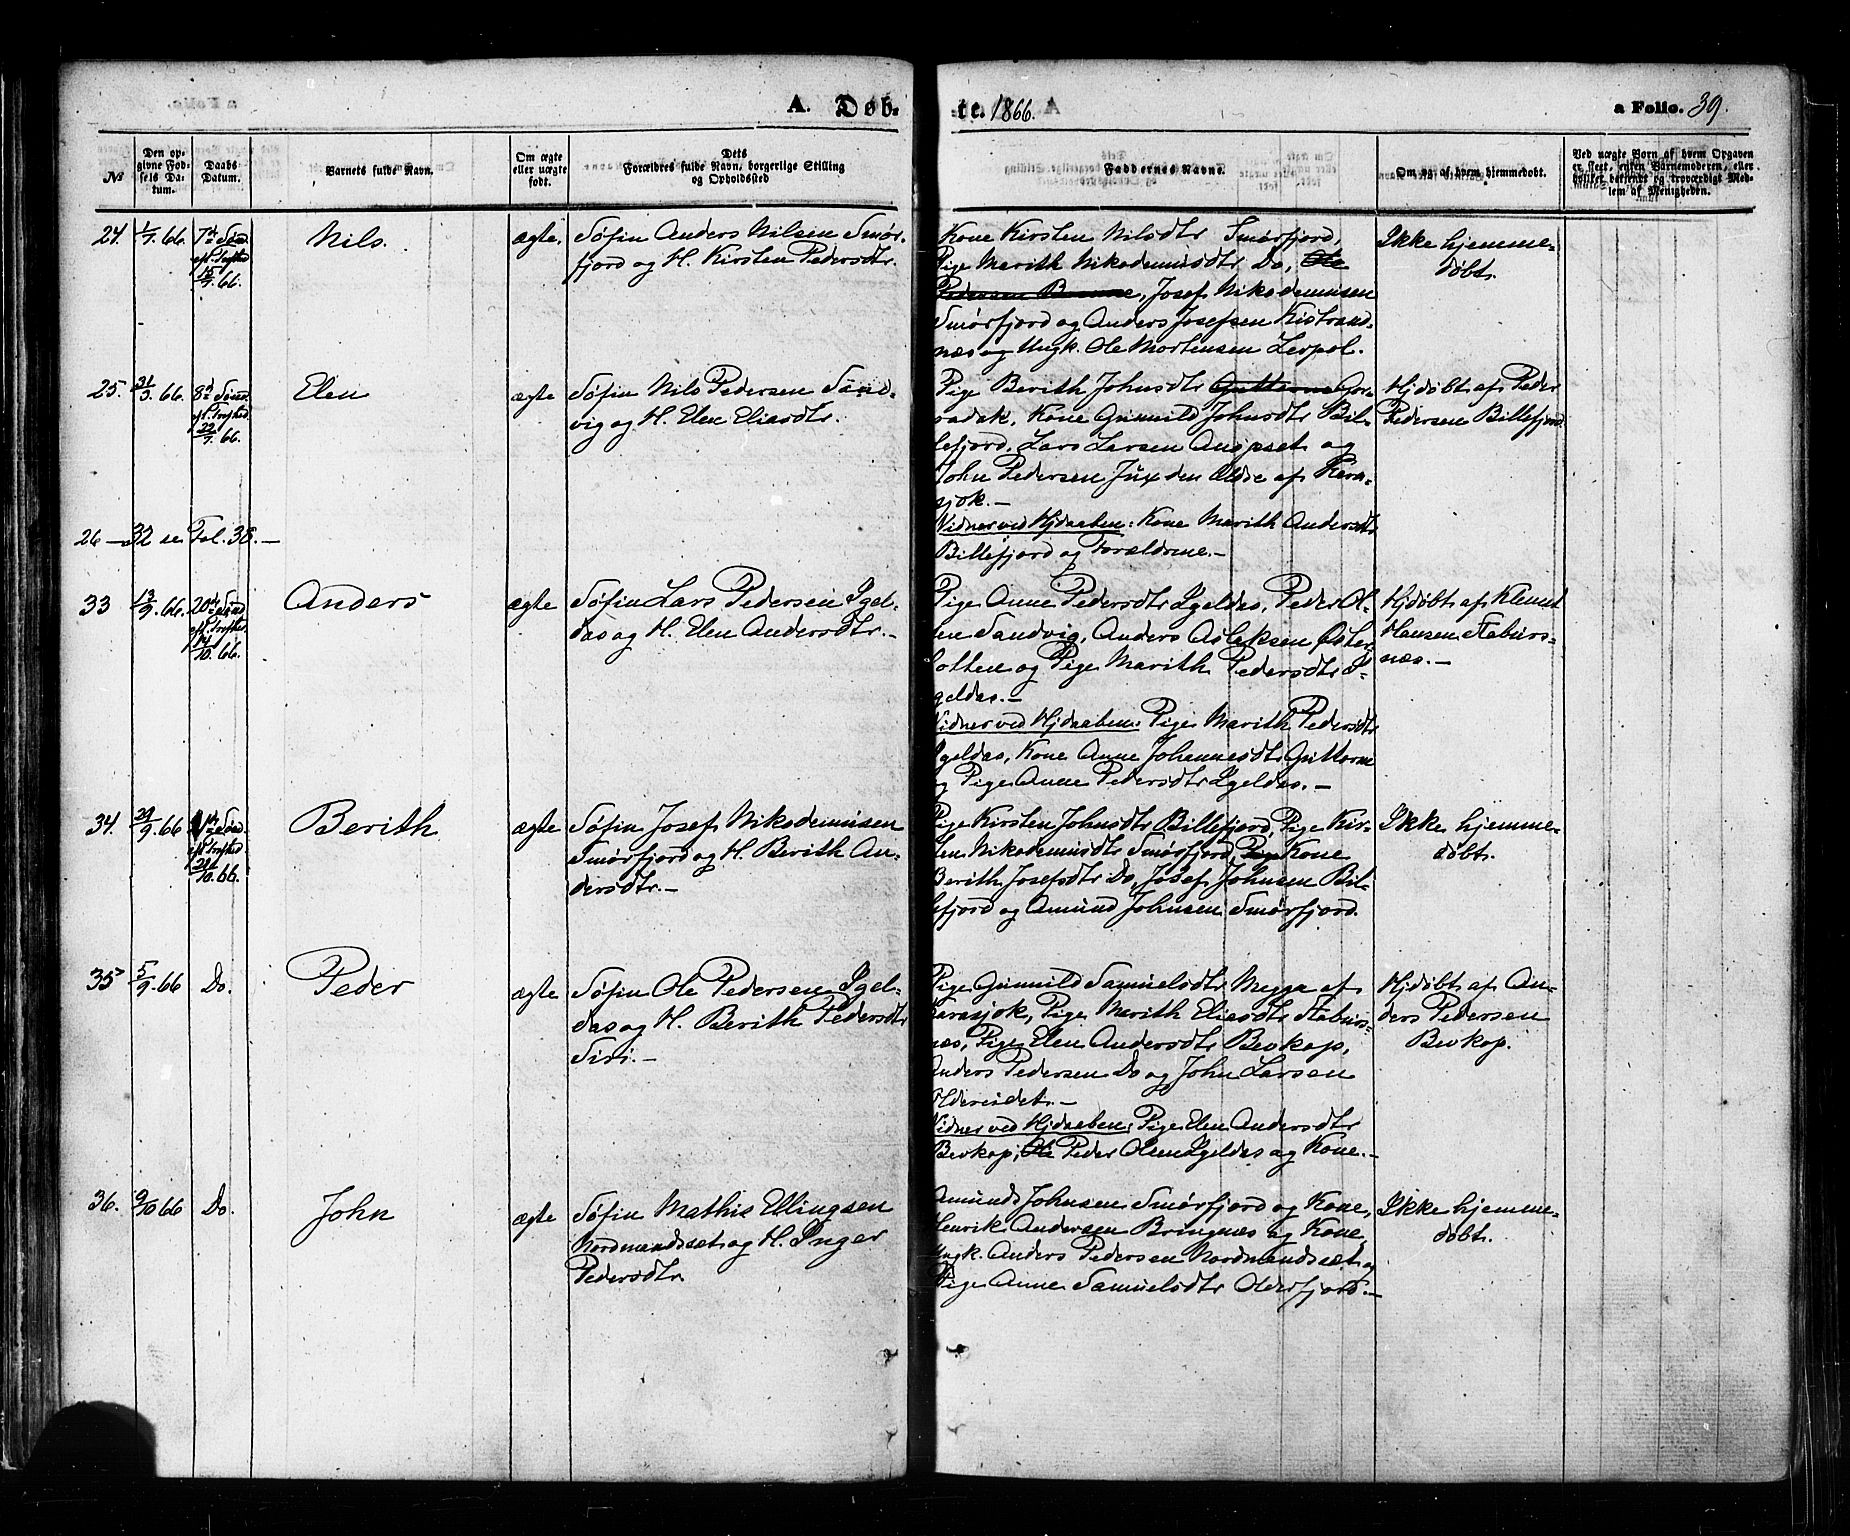 A. Døb-
te. 1866.
a Folio. 39.
No
Den op-
givne Fød-
sels Da-
tum.
Daabs-
Datum.
Barnets fulde Navn.
Om ægte
eller uægte
født.
Dets
Forældres fulde Navn, borgerlige Stilling
og Opholdssted
Faddernes Navne.
Om og af hvem hjemmedøbt.
Ved uægte Børn af hvem Opgaven
er skeet, enten Barnemoderen, eller
hvilket bekjendt og troværdigt Med-
lem af Menigheden.
24. 1/7. 66. 7de Sønd.
eft. Trefhed
15/7. 66.
Nils.
ægte.
Søfin Anders Nilsen Smør-
fjord og H. Kirsten Pedersdtr.
Kone Kirsten Nilsdtr Smørfjord,
Pige Marith Nikodemusdtr Do, Ole
Pedersen, Josef Nikodemusen
Smørfjord og Anders Josefsen Kistrand-
næs og Ungk. Ole Mortensen Lerpol.
Ikke hjemme-
døbt.
25. 31/5. 66. 8de Sønd.
eft. Trefhed.
22/7. 66.
Elen
ægte
Søfin Nils Pedersen Sand-
vig og H. Elen Eliasdtr.
Pige Berith Johnsdtr Guttorm Gor-
vadak, Kone Gunnild Johnsdtr Bil-
lefjord, Lars Larsen Anopset og
John Pedersen Jux den Ældre af Kara-
sjok.—
Vidner ved Hjdaaben: Kone Marith Andersdtr
Billefjord og Forældrene.—
Hjdøbt af Peder
Pedersen Billefjord.
26 — 32 se Fol. 38.—
33 13/9. 66. 20de Sønd
eft. Trefhed
14/10. 66.
Anders
ægte
Søfin Lars Pedersen Igel-
das og H. Elen Andersdtr.—
Pige Anne Pedersdtr Igeldas, Peder Ol-
sen Sandvig, Anders Aslaksen Øster-
botten og Pige Marith Pedersdtr I-
geldas.—
Vidner ved Hjdaaben: Pige Marith Pedersdtr
Igeldas, Kone Anne Johannesdtr Guttorm
og Pige Anne Pedersdtr Igeldas.—
Hjdøbt af Klemet
Hansen Staburs-
næs.—
34. 29/9. 66 21de Sønd.
eft. Trefhed
21/10. 66.
Berith
ægte
Søfin Josef Nikodemusen
Smørfjord og H. Berith An-
dersdtr.—
Pige Kirsten Johnsdtr Billefjord, Pige Kir-
sten Nikodemusdtr Smørfjord, Pige Kone
Berith Josefsdtr Do, Josef Johnsen Bil-
lefjord og Amund Johnsen Smørfjord.
Ikke hjemme-
døbt.
35 5/9. 66 Do.
Peder
ægte
Søfin Ole Pedersen Igel-
das og H. Berith Pedersdtr
Siri.—
Pige Gunnild Samuelsdtr Megga af
Karasjok, Pige Marith Eliasdtr Staburs-
næs, Pige Elen Andersdtr Bevkop,
Anders Pedersen Do og John Larsen
Oldereidet.—
Vidner ved Hjdaaben: Pige Elen Andersdtr
Bevkop, Ole Peder Olsen Igeldas og Kone.—
Hjdøbt af An-
ders Pedersen
Bevkop.
36. 9/10 66 Do.
John
ægte
Søfin Mathis Ellingsen
Nordmandsset og H. Inger
Pedersdtr.
Amund Johnsen Smørfjord og Kone,
Henrik Andersen Bringnæs og Kone,
Ungk. Anders Pedersen Nordmandsset og
Pige Anne Samuelsdtr Olderfjord.—
Ikke hjemme-
døbt.